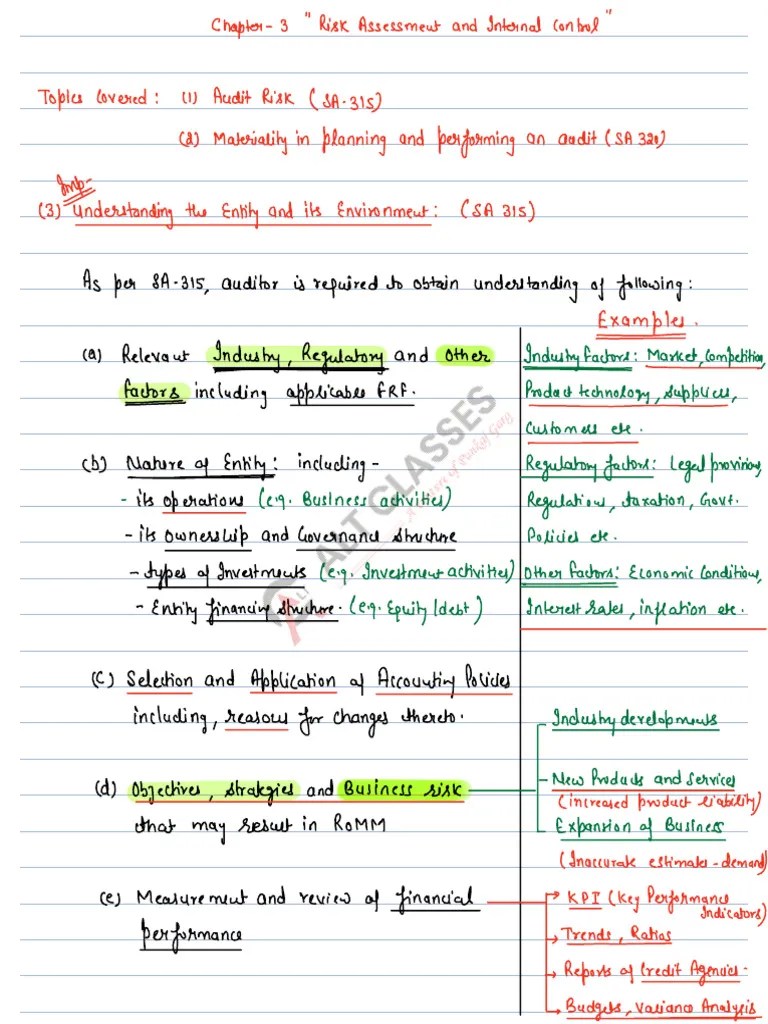 Chapter- 3 "Risk Assessment and Internal Control"
Topics Covered: (1) Audit Risk (SA-315)
(2) Materiality in planning and performing an audit (SA 320)
Imp-
(3) Understanding the Entity and its Environment: (SA 315)
As per SA-315, auditor is required to obtain understanding of following:
Examples.
(a) Relevant Industry, Regulatory and Other
factors including applicable FRF.
Industry Factors: Market, Competition,
Product technology, Suppliers,
Customers etc.
(b) Nature of Entity: including-
- its operations (e.g. Business activities)
- its Ownership and Governance Structure
- Types of Investments (e.g. Investment activities)
- Entity financing structure. (e.g. Equity/debt)
Regulatory factors: Legal provisions,
Regulations, taxation, Govt.
Policies etc.
Other Factors: Economic Conditions,
Interest rates, inflation etc.
(c) Selection and Application of Accounting Policies
including, reasons for changes thereto.
(d) Objectives, Strategies and Business risk
that may result in RoMM
Industry developments
New Products and Services
(increased product liability)
Expansion of Business
(Inaccurate estimates-demand)
(e) Measurement and review of financial
performance
KPI (Key Performance
Indicators)
Trends, Ratios
Reports of Credit Agencies-
Budgets, Variance Analysis
ALT CLASSES